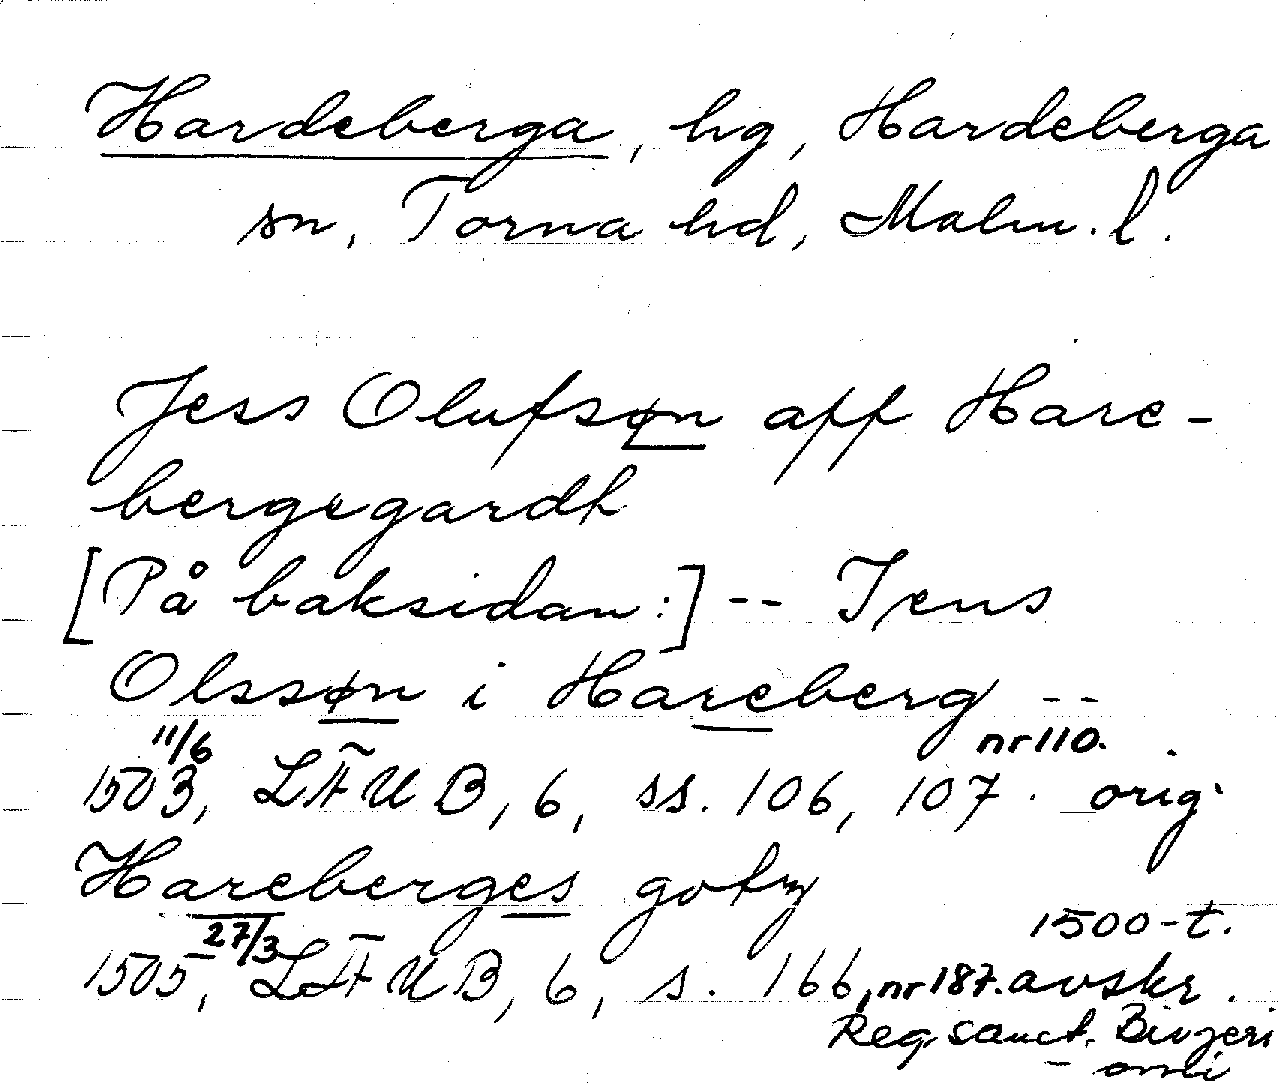 Hardeberga, hg, Hardeberga
sn, Torna hd, Malm. l.
Jess Olufsøn aff Hare-
bergegardh
[På baksidan:] -- Jens
Olssøn i Hareberg --
11/6 nr 110.
1503, LÄUB, 6, ss. 106, 107. orig.
Hareberges gotz
27/3 1500-t.
1505, LÄUB, 6, s. 166, nr 187. avskr.
Reg. sanct.